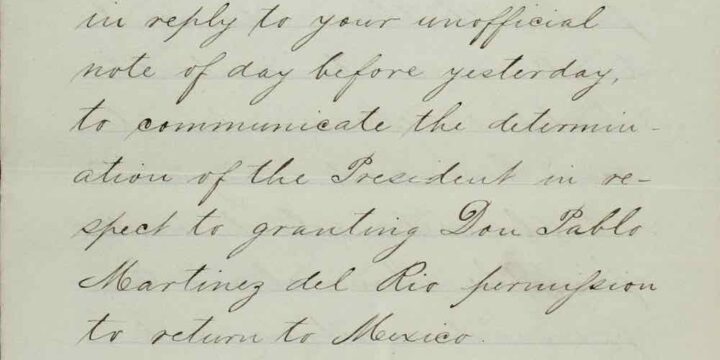 in reply to your unofficial
note of day before yesterday,
to communicate the determin-
ation of the President in re-
spect to granting Don Pablo
Martinez del Rio permission
to return to Mexico.